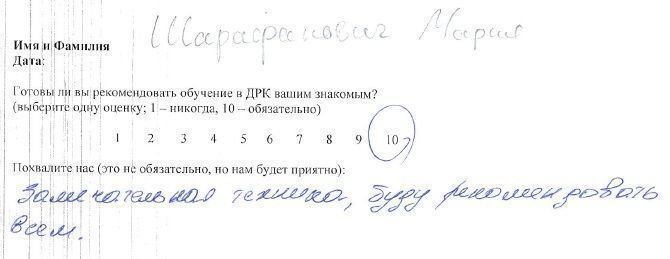 Шарафанович Мария
Имя и Фамилия
Дата:
Готовы ли вы рекомендовать обучение в ДРК вашим знакомым?
(выберите одну оценку; 1 – никогда, 10 – обязательно)
1 2 3 4 5 6 7 8 9 10
Похвалите нас (это не обязательно, но нам будет приятно):
Замечательная техника, буду рекомендовать
всем.